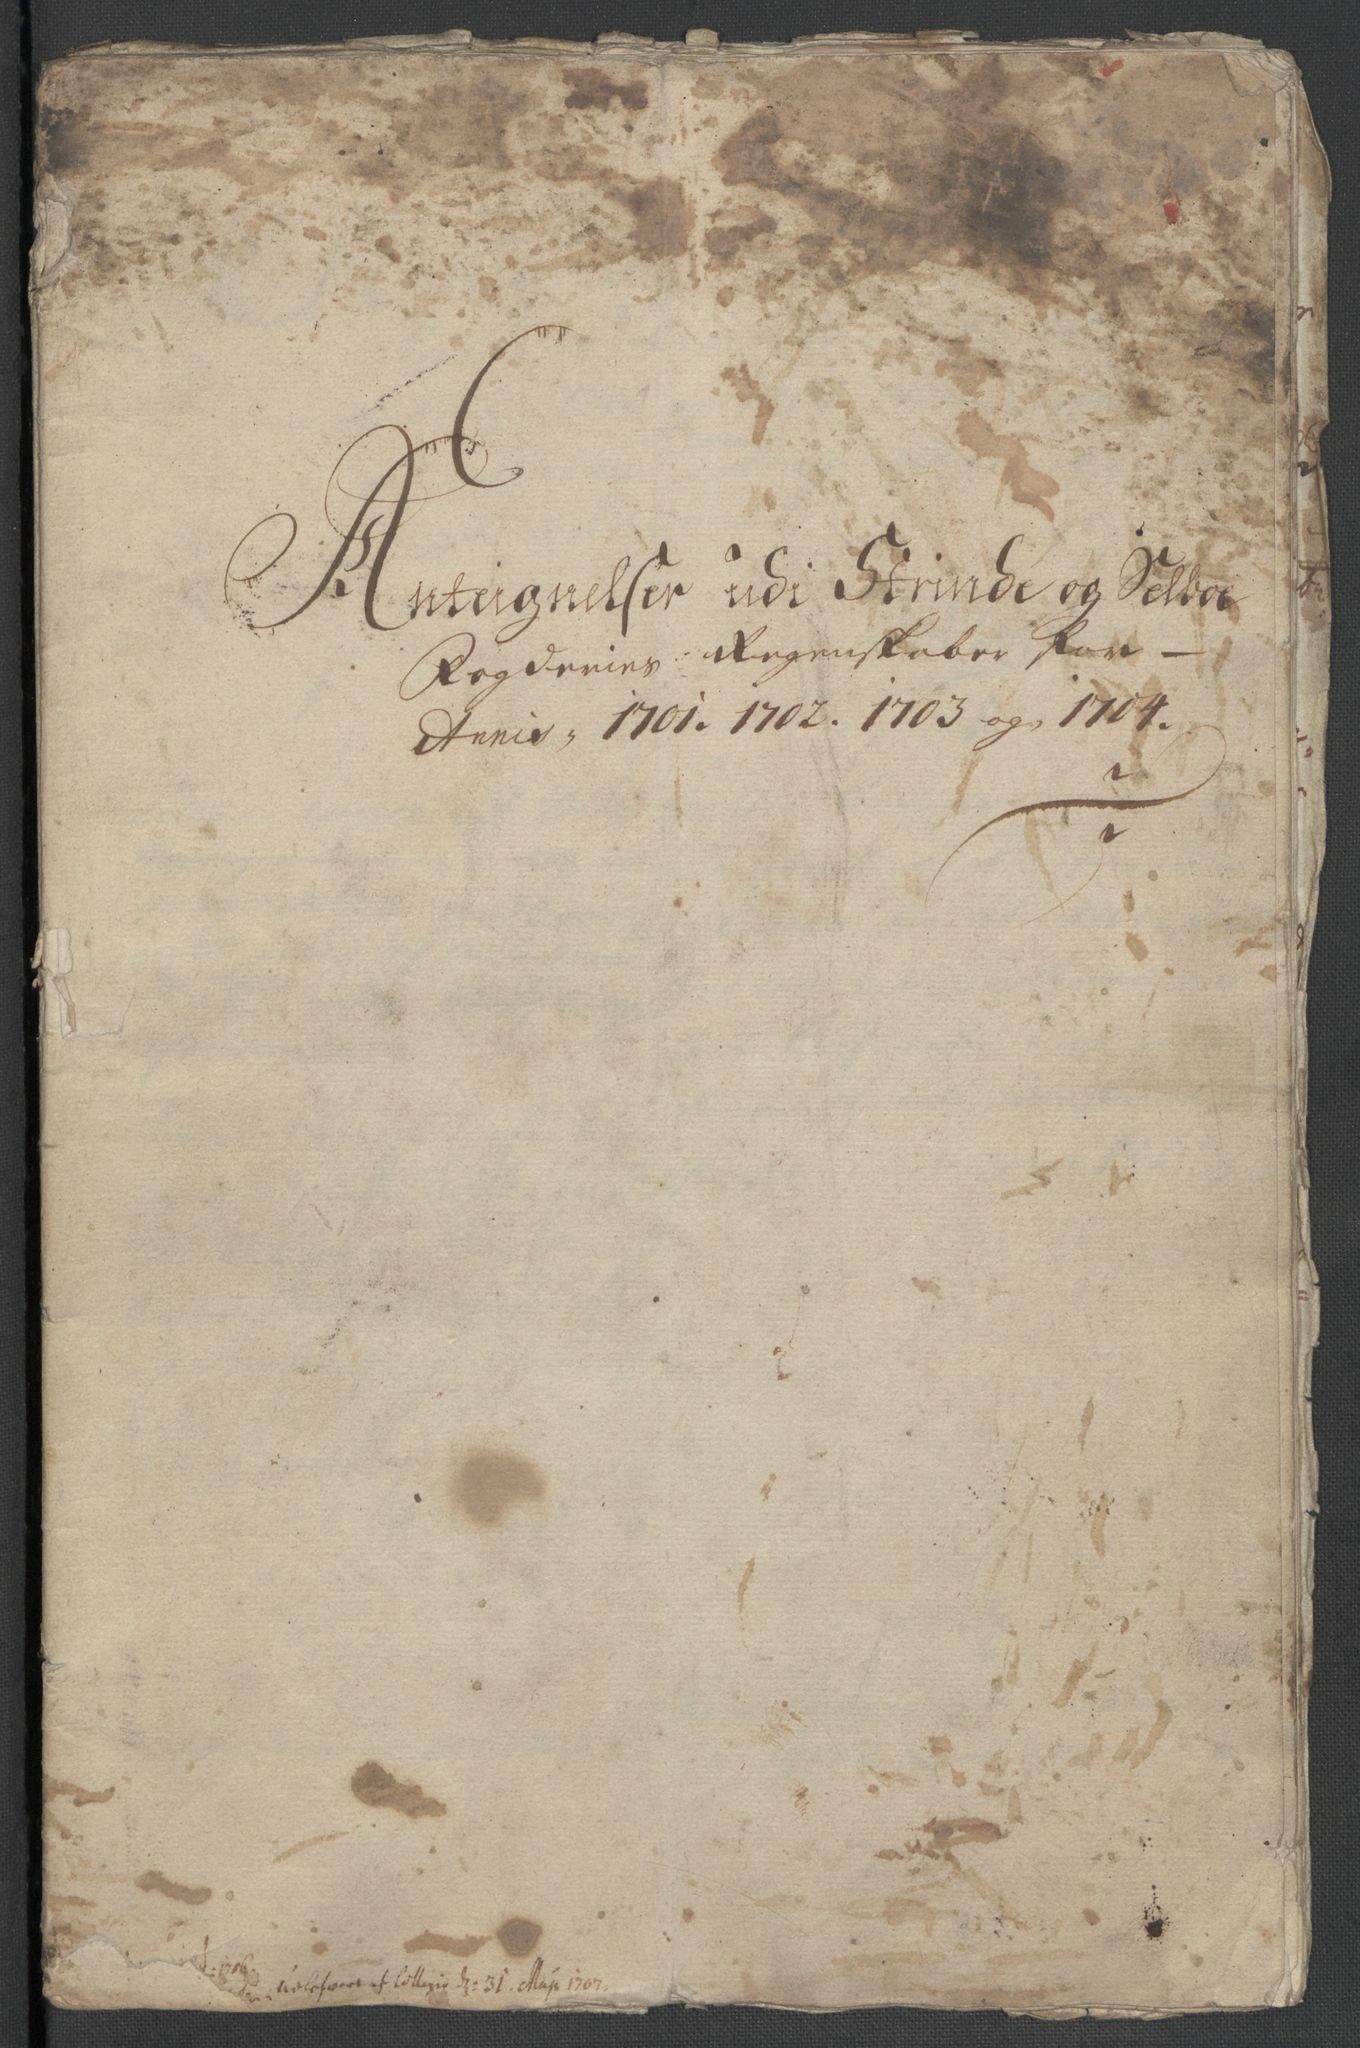 Antegnelser udi Strinde og Selboe
Fogderies Regenskaber for —
Annis, 1701. 1702. 1703 og, 1704.
1706.
af Collegio d: 31. Maji 1707.